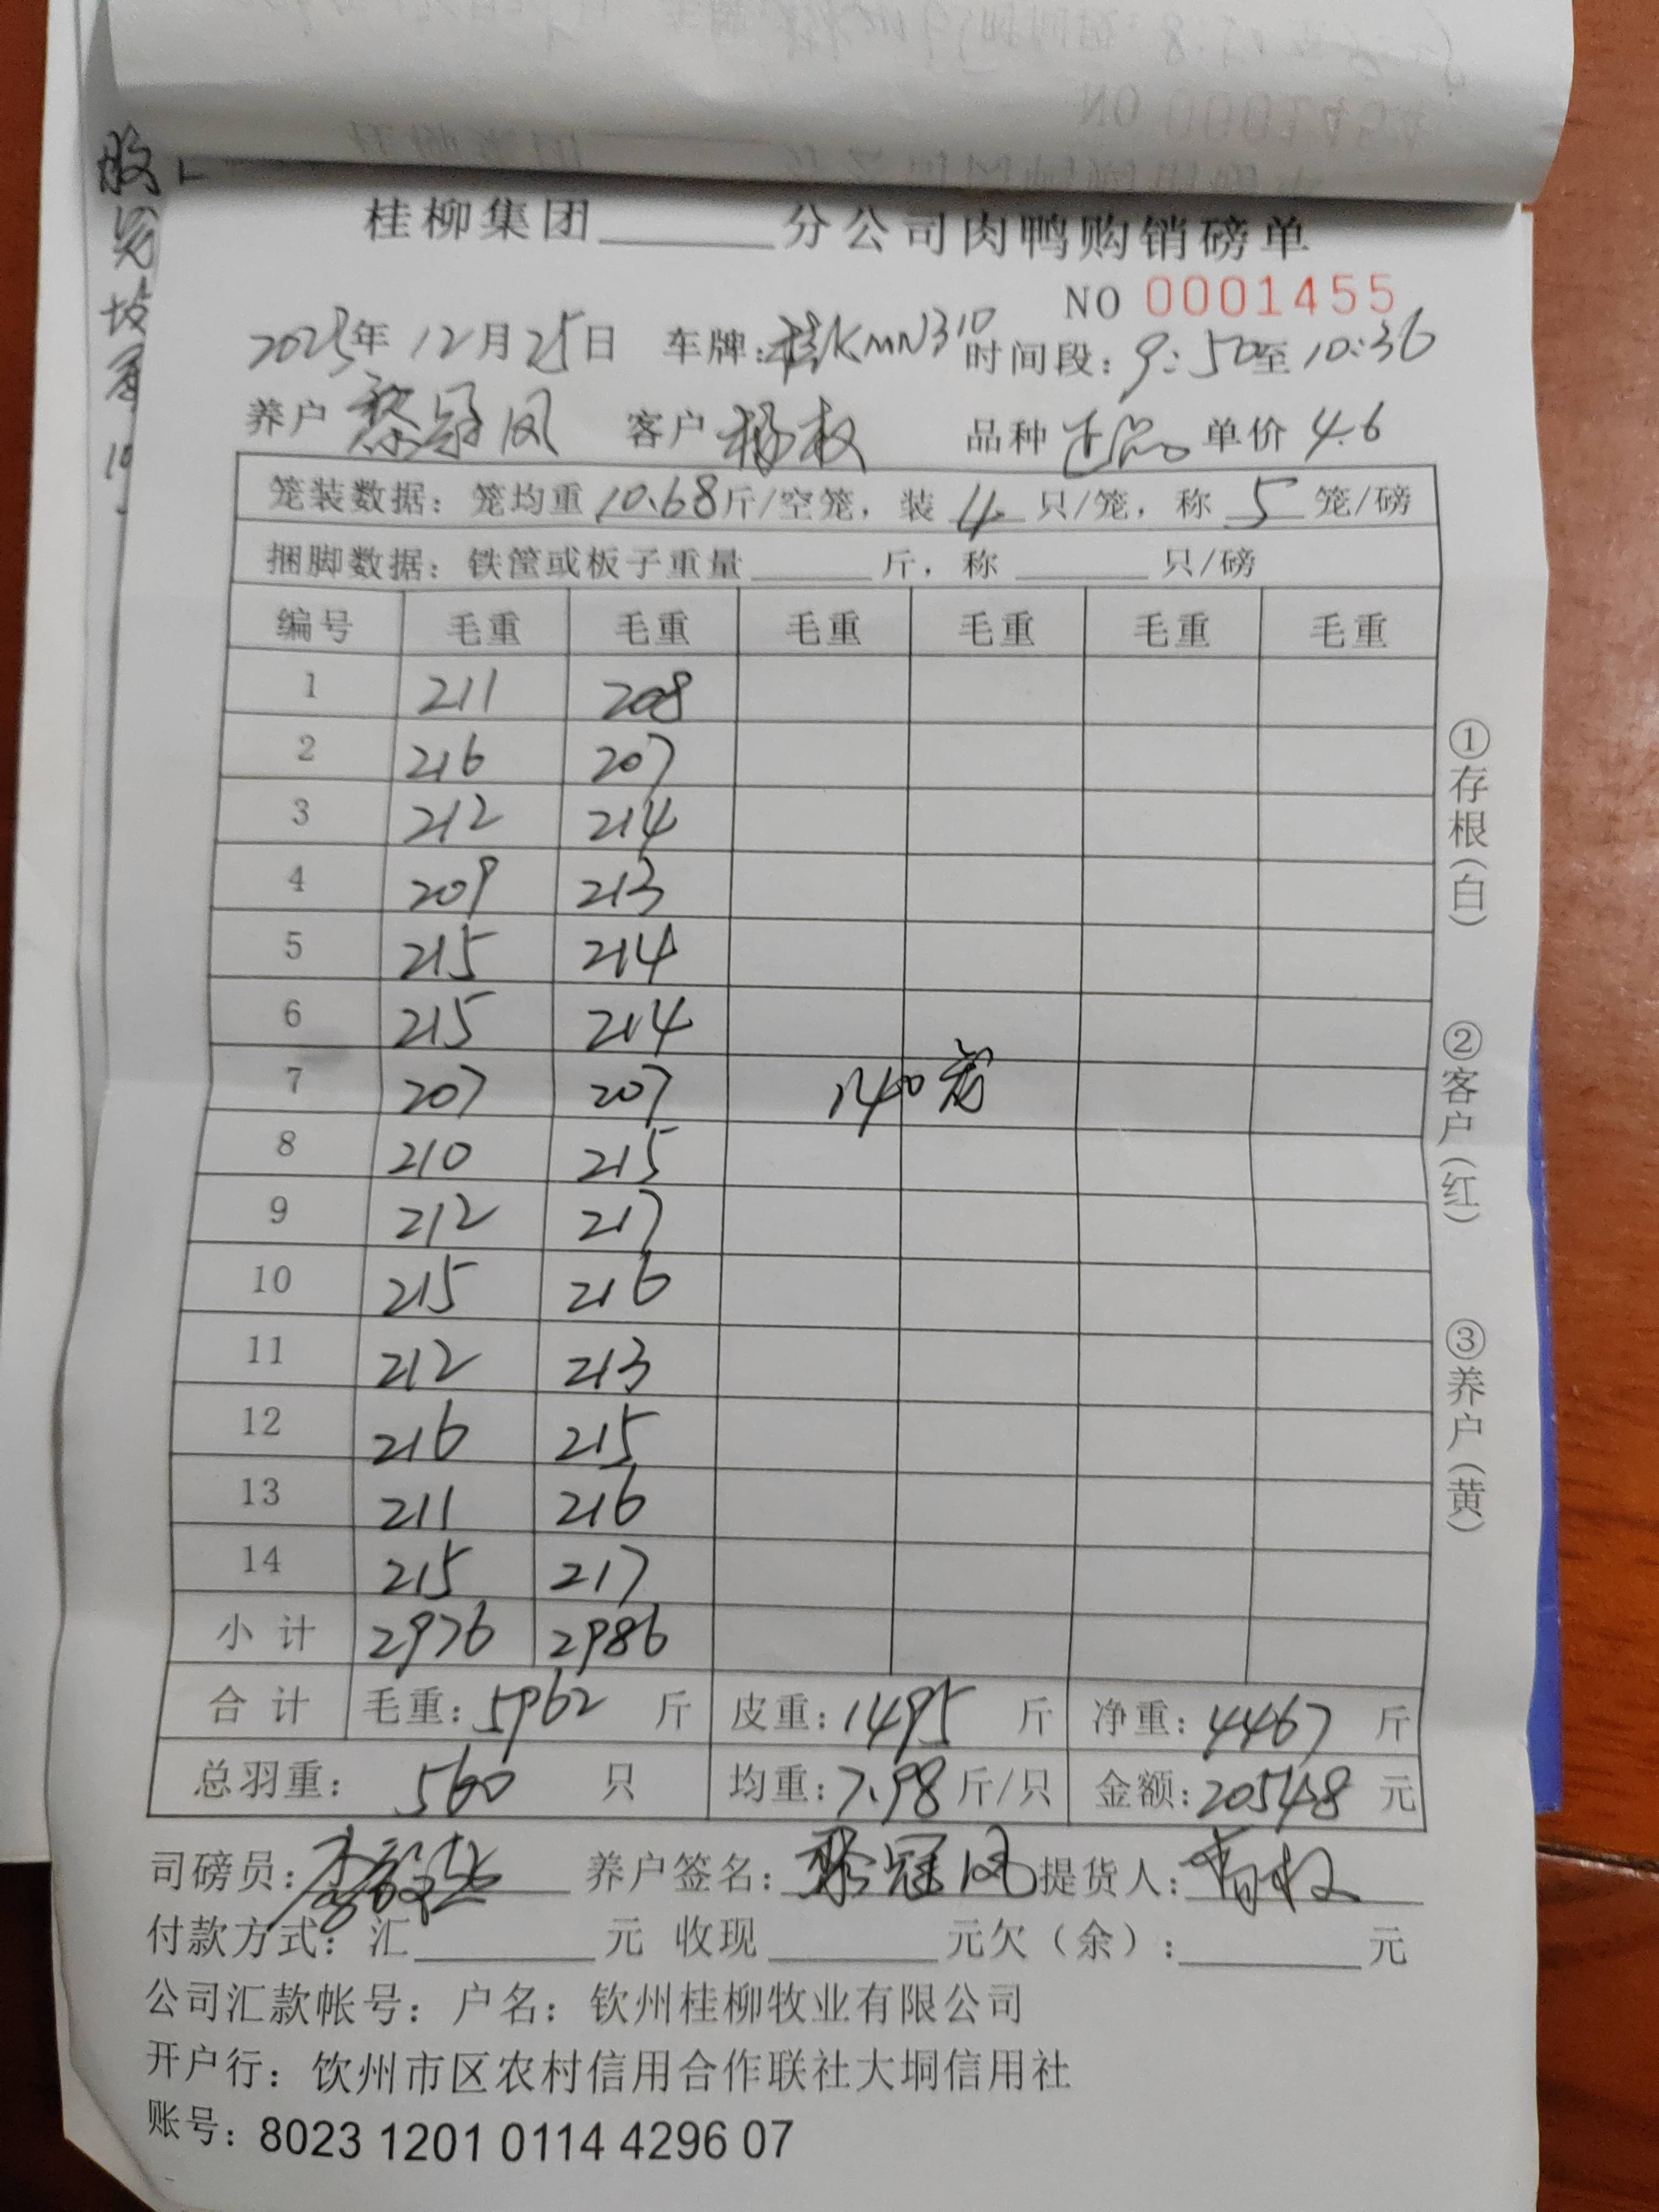 桂柳集团______分公司肉鸭购销磅单
NO 0001455
2025年 12月 25日 车牌：桂KMN310 时间段：9:50至10:36
养户 黎冠凤 客户 杨权 品种 正品 单价 4.6
笼装数据：笼均重 10.68 斤/空笼，装 4 只/笼，称 5 笼/磅
捆脚数据：铁筐或板子重量______斤，称______只/磅
编号 毛重 毛重 毛重 毛重 毛重 毛重
1 211 208
2 216 207
3 212 214
4 209 213
5 215 214
6 215 214
7 207 207 140笼
8 210 215
9 212 217
10 215 216
11 212 213
12 216 215
13 211 216
14 215 217
小计 2976 2986
合计 毛重：5962 斤 皮重：1495 斤 净重：4467 斤
总羽重：560 只 均重：7.98 斤/只 金额：20548 元
司磅员： 养户签名：黎冠凤 提货人：
付款方式：汇______元 收现______元欠（余）：______元
公司汇款帐号：户名：钦州桂柳牧业有限公司
开户行：钦州市区农村信用合作联社大垌信用社
账号：8023 1201 0114 4296 07
①存根（白）
②客户（红）
③养户（黄）